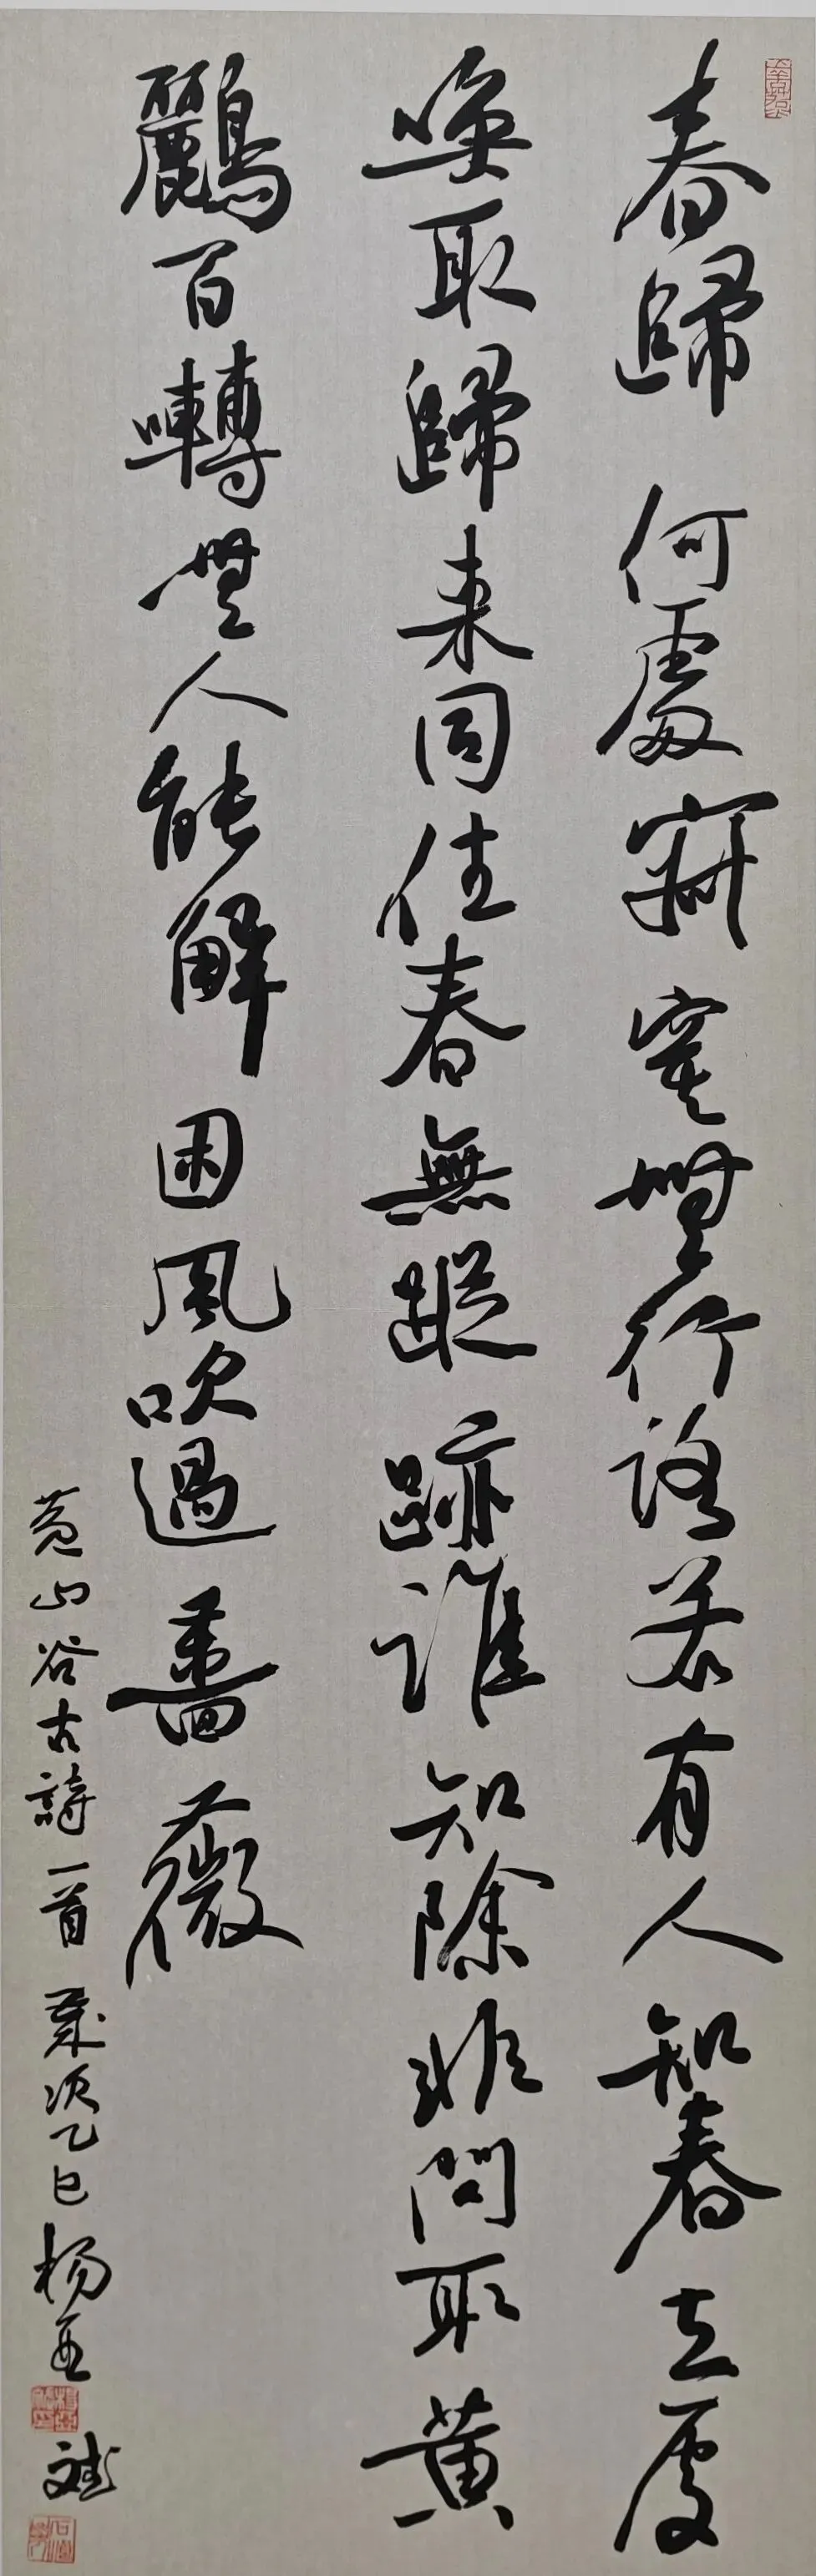 春歸何處寂寞無行路若有人知春去處
喚取歸來同住春無蹤跡誰知除非問取黃
鸝百囀無人能解因風吹過薔薇
黃山谷古詩一首歲次乙巳楊亚斌